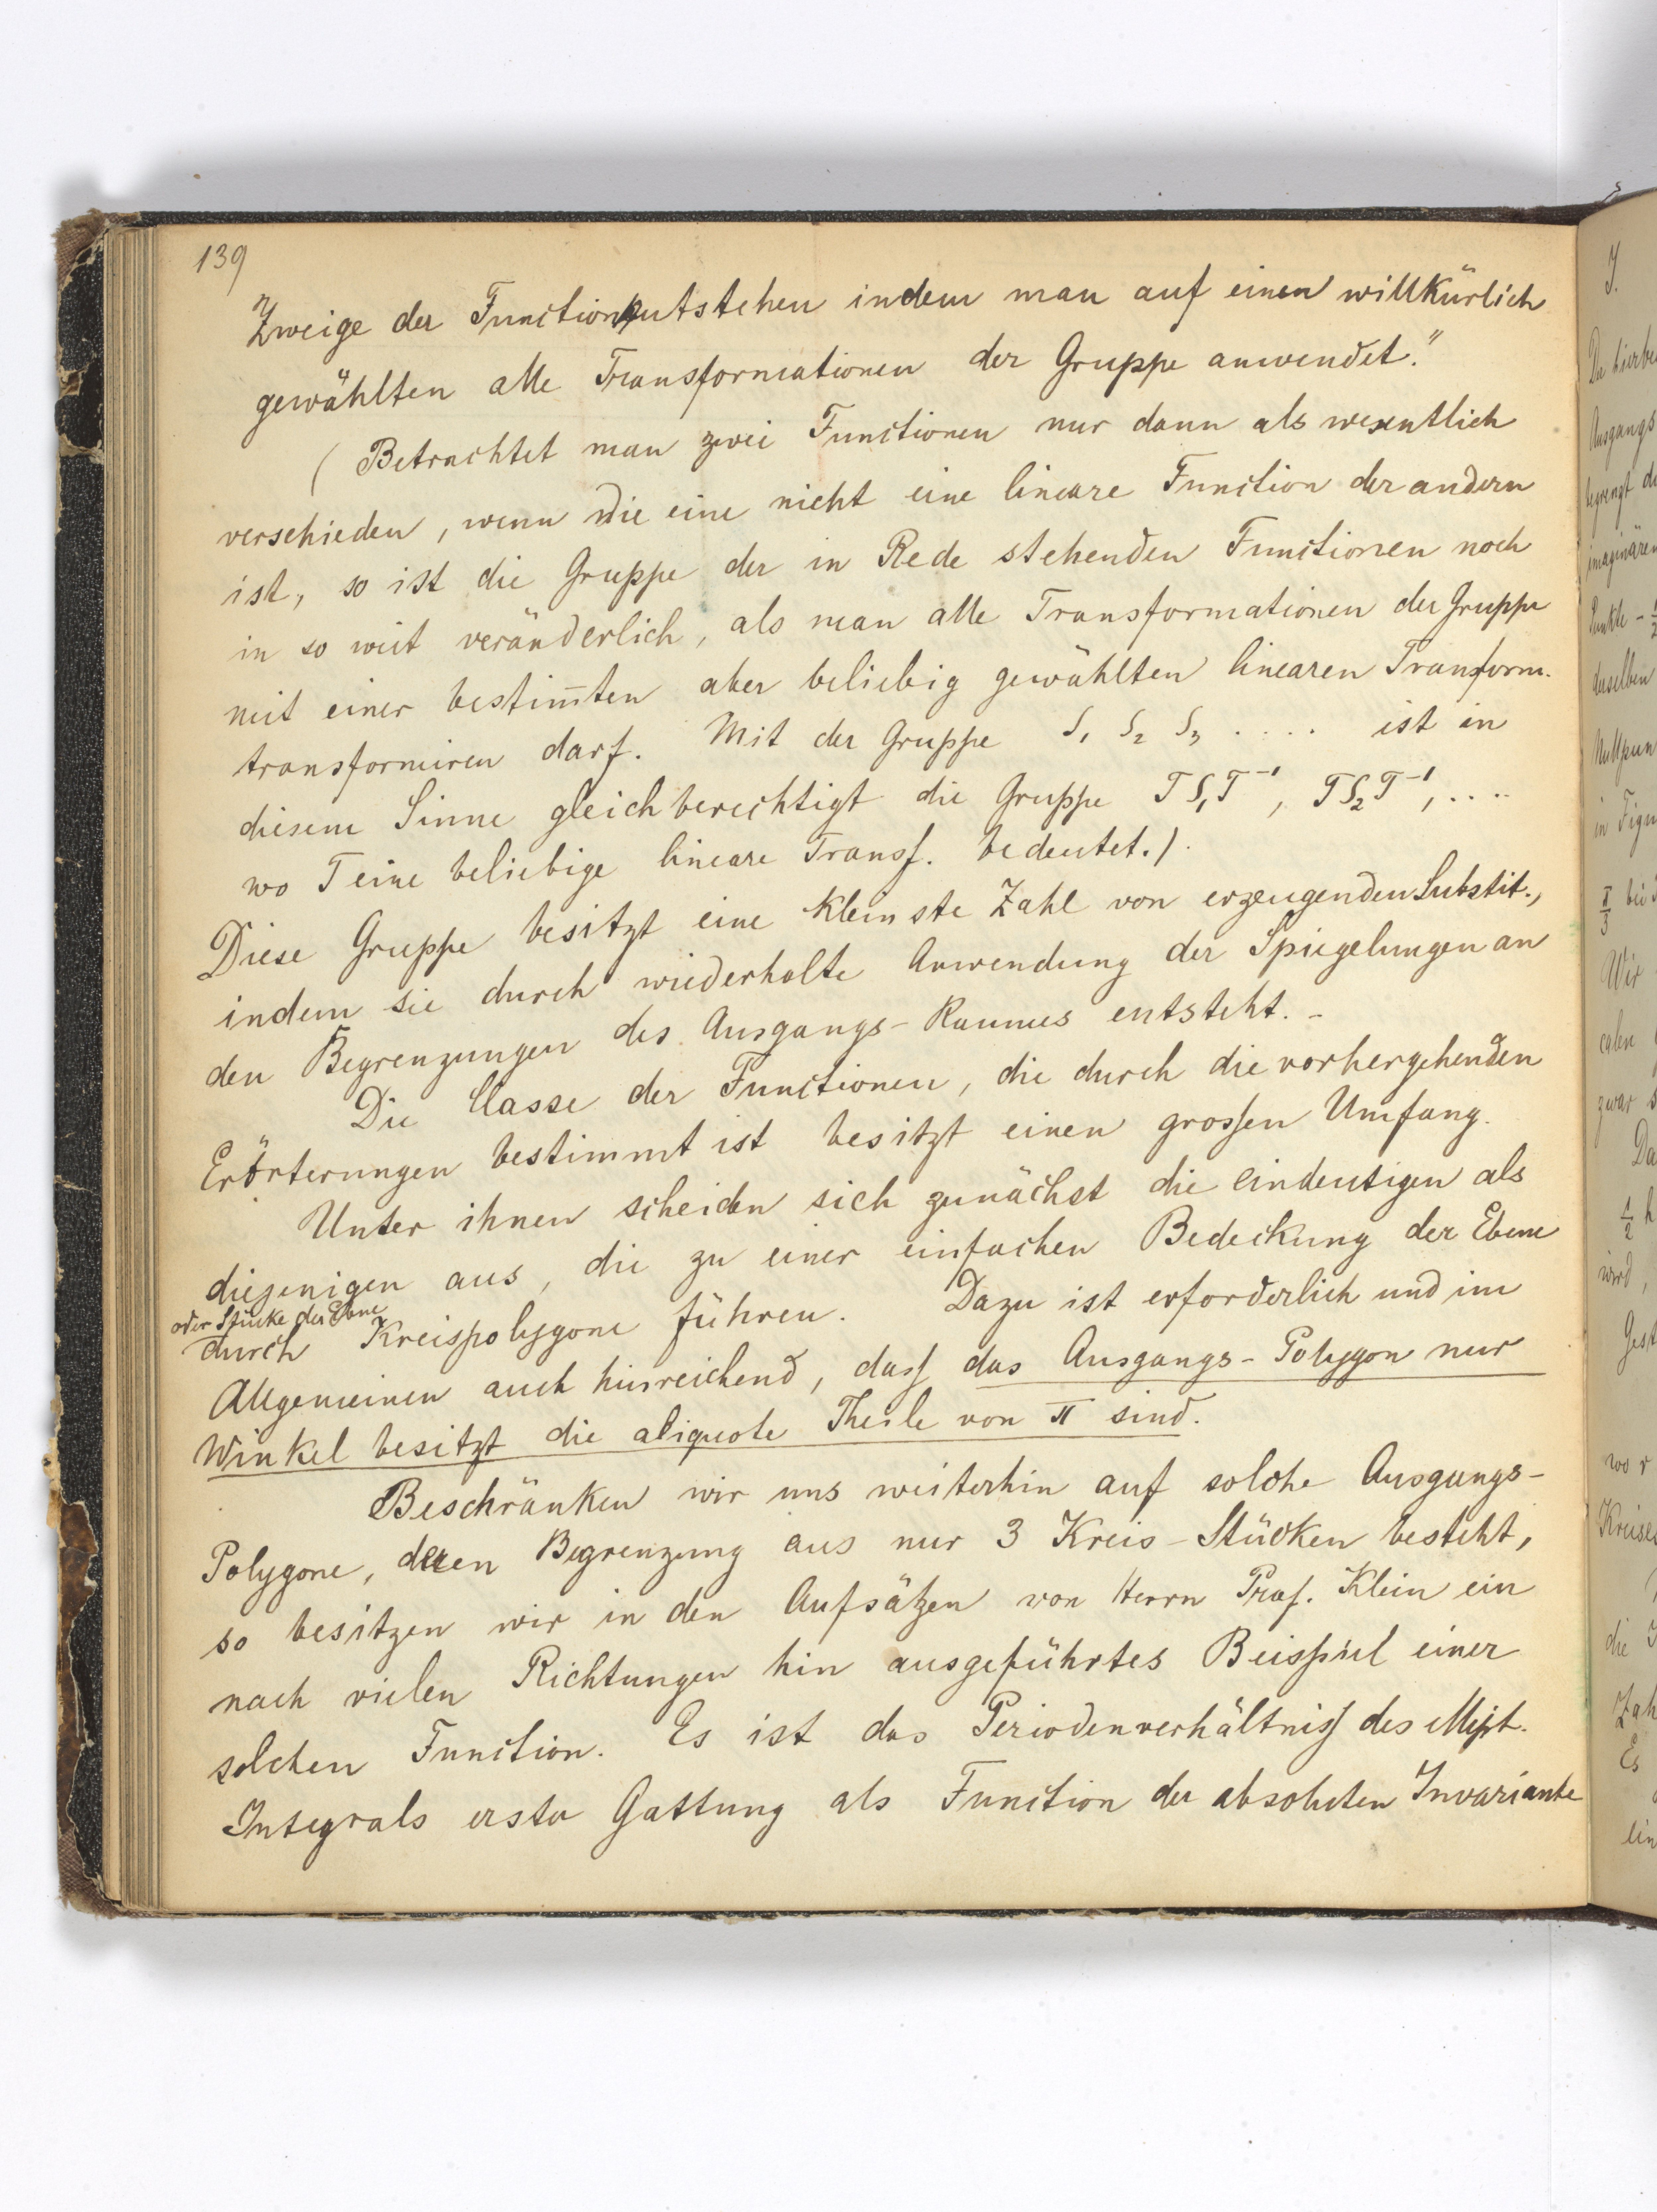 139
Zweige der Function entstehen indem man auf einen willkürlich
gewählten alle Transformationen der Gruppe anwendet."
( Betrachtet man zwei Functionen nur dann als wesentlich
verschieden, wenn die eine nicht eine lineare Function der andern
ist, so ist die Gruppe der in Rede stehenden Functionen noch
in so weit veränderlich, als man alle Transformationen der Gruppe
mit einer bestim̄ten aber beliebig gewählten linearen Tranform.
transformiren darf. Mit der Gruppe S₁ S₂ S₃ .... ist in
diesem Sinne gleichberechtigt die Gruppe TS₁T⁻¹, TS₂T⁻¹, ....
wo T eine beliebige lineare Transf. bedeutet.).
Diese Gruppe besitzt eine kleinste Zahl von erzeugenden Substit.,
indem sie durch wiederholte Anwendung der Spiegelungen an
den Begrenzungen des Ausgangs-Raumes entsteht. -
Die Classe der Functionen, die durch die vorhergehenden
Erörterungen bestimmt ist besitzt einen grossen Umfang.
Unter ihnen scheiden sich zunächst die eindeutigen als
diejenigen aus, die zu einer einfachen Bedeckung der Ebene
oder Stücke der Ebene
durch Kreispolygone führen. Dazu ist erforderlich und im
Allgemeinen auch hinreichend, dass das Ausgangs-Polygon nur
Winkel besitzt die aliquote Theile von π sind.
Beschränken wir uns weiterhin auf solche Ausgangs-
Polygone, deren Begrenzung aus nur 3 Kreis-Stücken besteht,
so besitzen wir in den Aufsätzen von Herrn Prof. Klein ein
nach vielen Richtungen hin ausgeführtes Beispiel einer
solchen Function. Es ist das Periodenverhältniss des ellipt.
Integrals erster Gattung als Function der absoluten Invariante